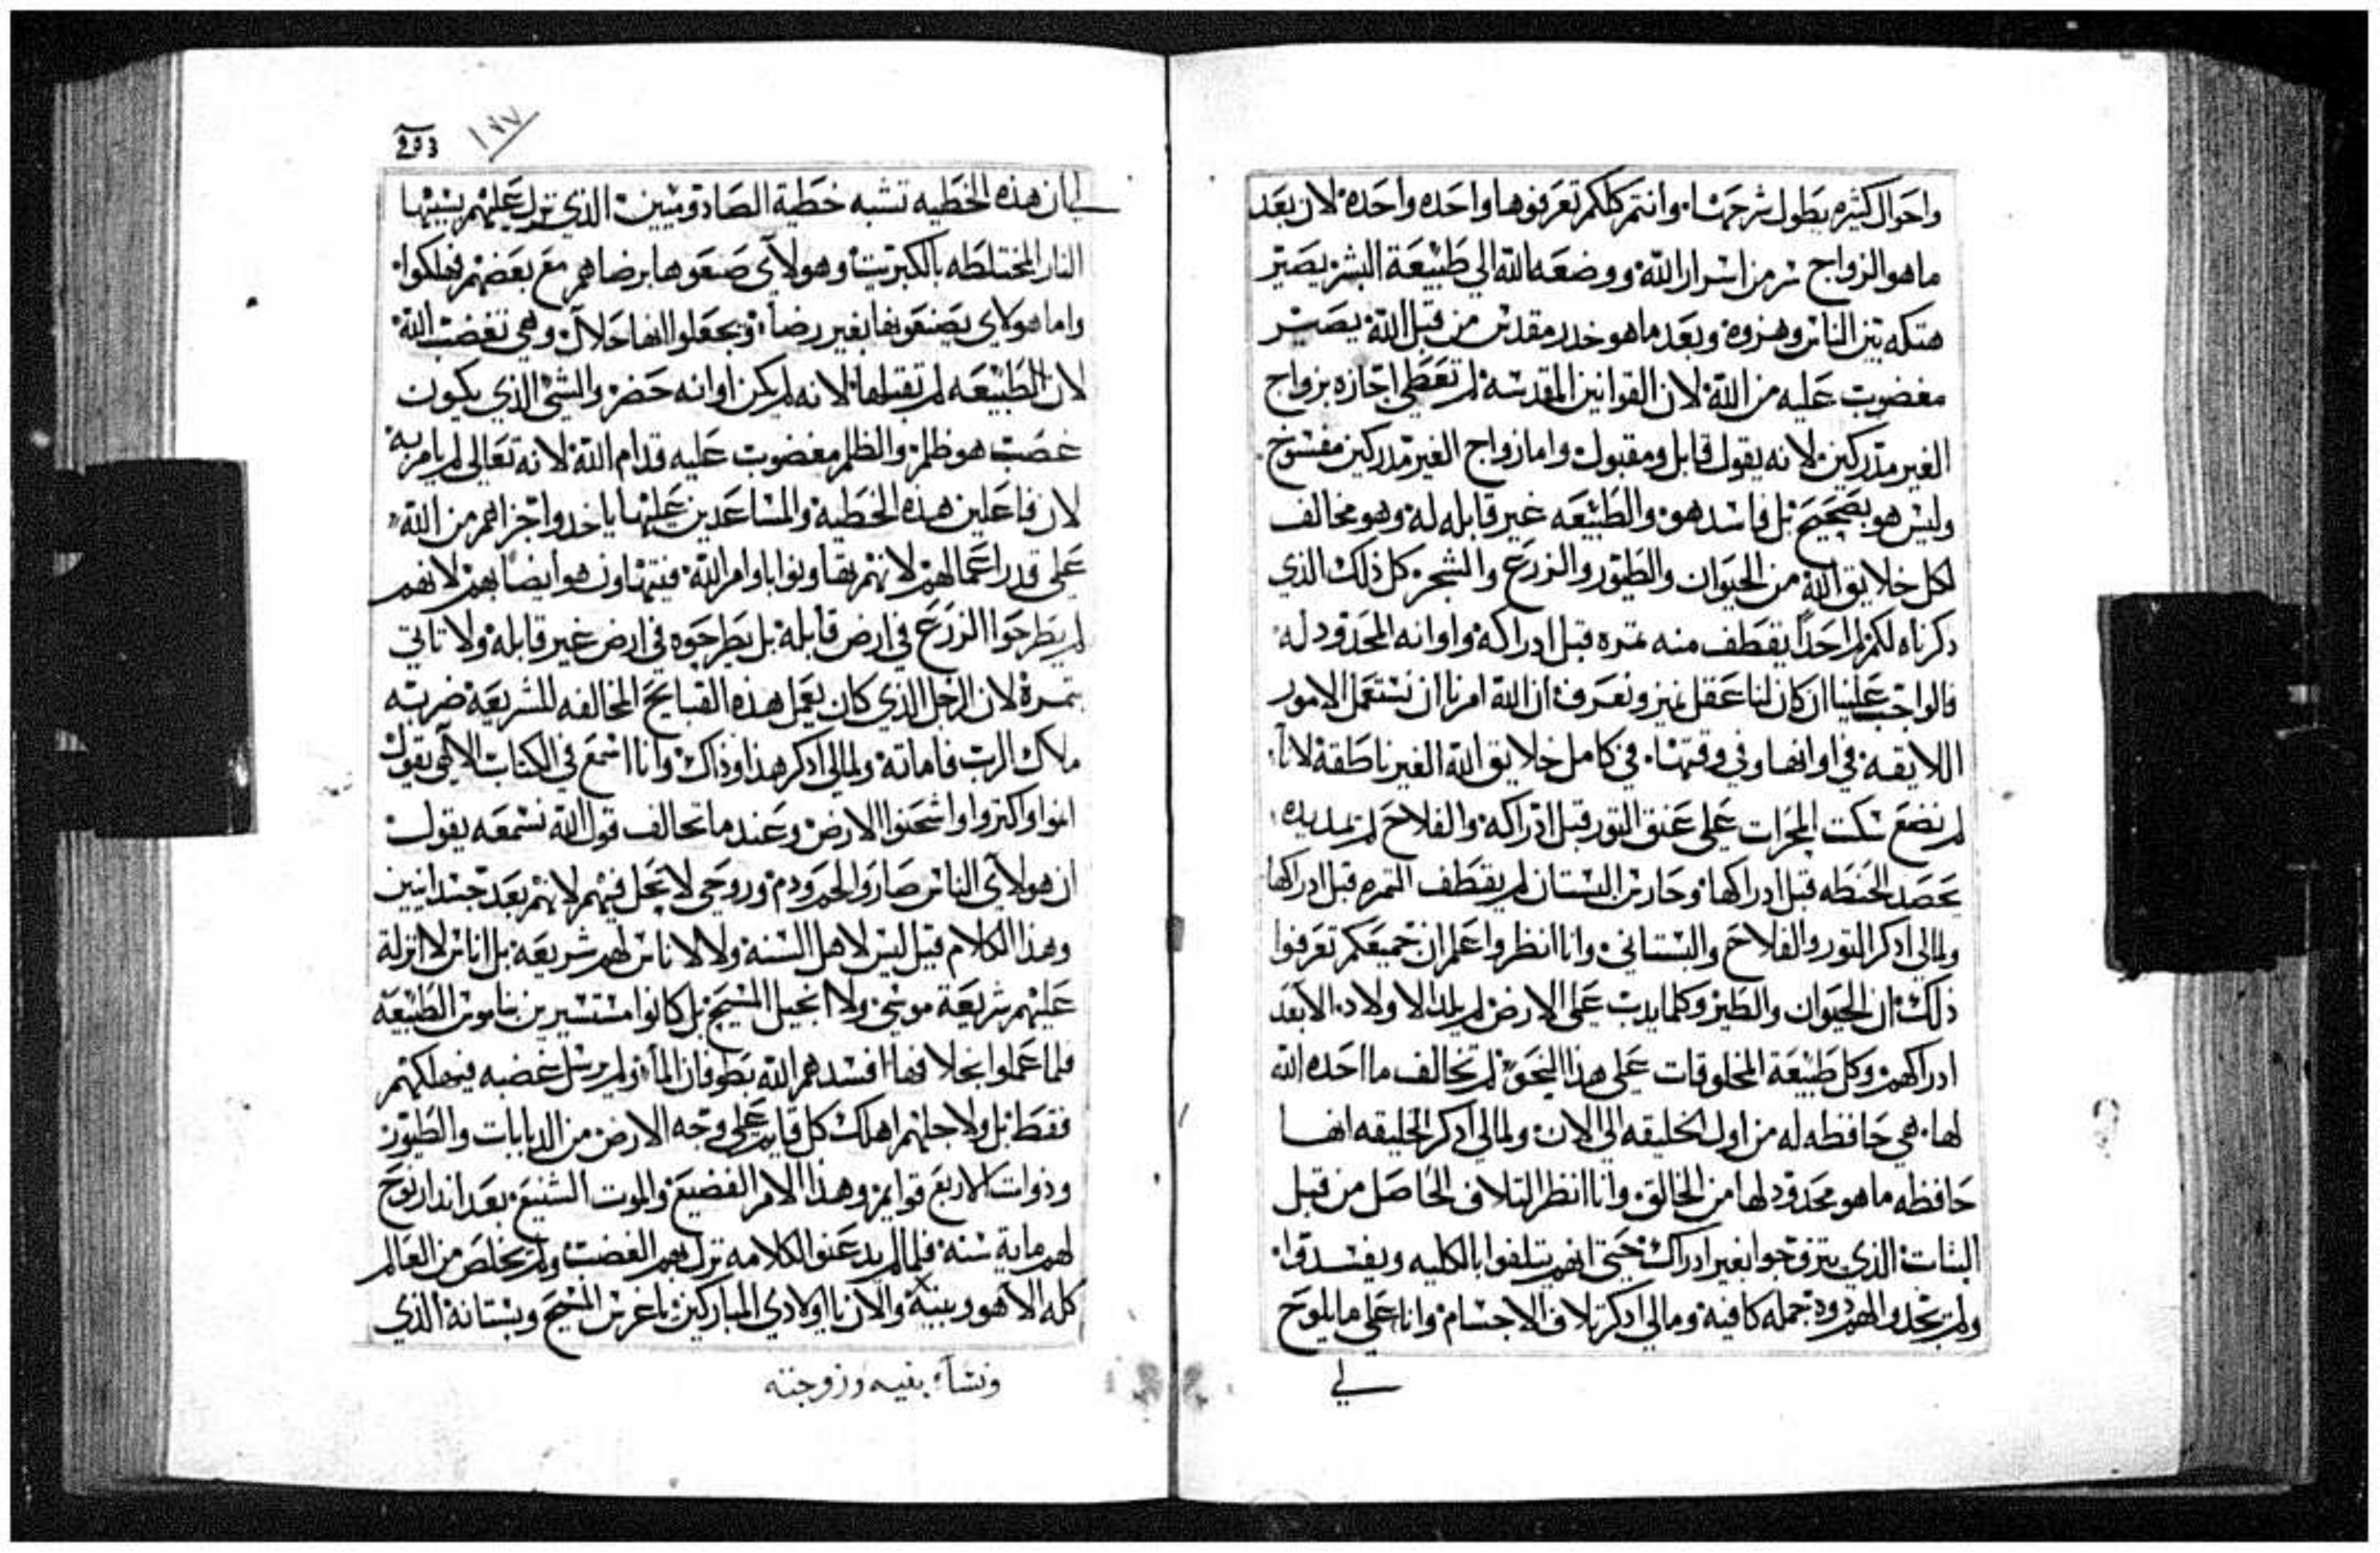 واحوال كثيره يطول شرحها، وانتم كلكم تعرفوها واحده واحده لان بعد
ما هو الزواج سر من اسرار الله ووضعه الله الي طبيعة البشر يصير
هتكه بين الناس وهزوه وبعد ما هو خدر مقدس من قبل الله يصير
مغضوب عليه من الله لان القوانين المقدسه لم تعطي اجازه بزواج
الغير مدركين لانه يقول قابل ومقبول واما زواج الغير مدركين مفسوخ
وليس هو بصحيح بل فاسد هو والطبيعه غير قابله له وهو مخالف
لكل خلايق الله من الحيوان والطيور والزرع والشجر كل ذلك الذي
دكرناه لكم لم احدا يقطف منه تمره قبل ادراكه واوانه المحدود له
فالواجب علينا ان كان لنا عقل نميز ونعرف ان الله امرنا ان نستعمل الامور
اللايقه في اوانها وفي وقتها، في كامل خلايق الله الغير ناطقة لانا
لم نضع سكت المحرات علي عنق التور قبل ادراكه والفلاح لم يمد يده
يحصد الحنطه قبل ادراكها وحارس البستان لم يقطف التمره قبل ادراكها
ولمالي ادكر التور والفلاح والبستاني وانا انظر واعلم ان جميعكم تعرفوا
ذلك ان الحيوان والطير وكلما يدب علي الارض لم يلد الاولاد، الا بعد
ادراكهم وكل طبيعة المخلوقات علي هذا النحو لم تخالف ما احده الله
لها، هي حافظه له من اول الخليقه الي الان ولمالي ادكر الخليقه انها
حافظه ما هو محدود لها من الخالق وانا انظر التلاف الحاصل من قبل
البنات الذي يتزوجوا بغير ادراك حتي انهم يتلفوا بالكليه ويفسدوا
ولم يجدوا لهم دوه جمله كافية ومالي ادكر تلاف الاجسام وانا علي ما يلوح
لي
203 ١٩٧
لي ان هذه الخطيه تشبه خطية الصادوميين الذي نزل عليهم بسببها
النار المختلطه بالكبريت وهولاي صنعوها برضاهم مع بعضهم فهلكوا
واما هولاي يصنعونها بغير رضا، ويجعلوا انها حلال وهي تغضب الله
لان الطبيعه لم تقبلها لانه لم يكن اوانه حضر والشي الذي يكون
غصب هو ظلم والظلم مغضوب عليه قدام الله لانه تعالي لم يامر به
لان فاعلين هذه الخطيه والمساعدين عليها ياخدوا جزاهم من الله
علي قدر اعمالهم لانهم تهاونوا باوامر الله فيتهاون هو ايضا بهم لانهم
لم يطرحوا الزرع في ارض قابله بل يطرحوه في ارض غير قابله ولا تاتي
بتمرة لان الرجل الذي كان يعمل هذه القبايح المخالفه للشريعة ضربه
ملاك الرب فاماته ولمالي ادكر هذا وذاك وانا اسمع في الكتاب الالهي يقول
انموا واكتروا واشحنوا الارض وعند ما تخالف قول الله نسمعه يقول
ان هولاي الناس صاروا لحم ودم وروحي لا تحل فيهم لانهم بعد جسدانيين
وهذا الكلام قيل ليس لاهل السنة ولا لاناس لهم شريعه بل اناس لا انزلة
عليهم شريعة موسي ولا انجيل المسيح بل كانوا مستسيرين بناموس الطبيعه
فلما عملوا بخلافها افسدهم الله بطوفان الما، ولم يرسل غضبه فيهلكهم
فقط بل ولاجلهم اهلك كل قايم علي وجه الارض من الدبابات والطيور
وذوات الاربع قوايم وهذا الامر الفضيع والموت الشنيع بعد اندار نوح
لهم ماية سنه فلما لم يدعنوا لكلامه نزل بهم الغضب ولم يخلص من العالم
كله الا هو وبنيه والان يا اولادي المباركين يا غرس المسيح وبستانه الذي
ونسا، بنيه وزوجته